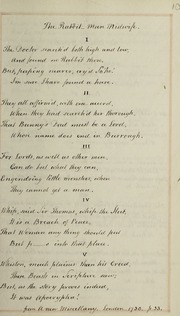 The Rabbit-Man Midwife.
I
The Doctor search'd both high and low,
And found no Rabbit there,
But peeping nearer, cry'd Soho!
I'm sure I have found a hare.
II
They all affirm'd, with one accord,
When they had search'd her thorough,
That Bunny's Dad must be a Lord,
Whose name does end in Burrough.
III
For Lords, as well as other men,
Can do but what they can,
Engend'ring little monster, when
They cannot get a man.
IV
Whip, and Sir Thomas, whip the Slut,
It is a Breach of Peace,
That Woman any thing should put
But p—s into that place.
V
Whiston, much plainer than his Creed,
This Beast in Scripture saw;
But, as the story proves indeed,
It was Apocrypha!
from A new Miscellany. London. 1730. p. 33.